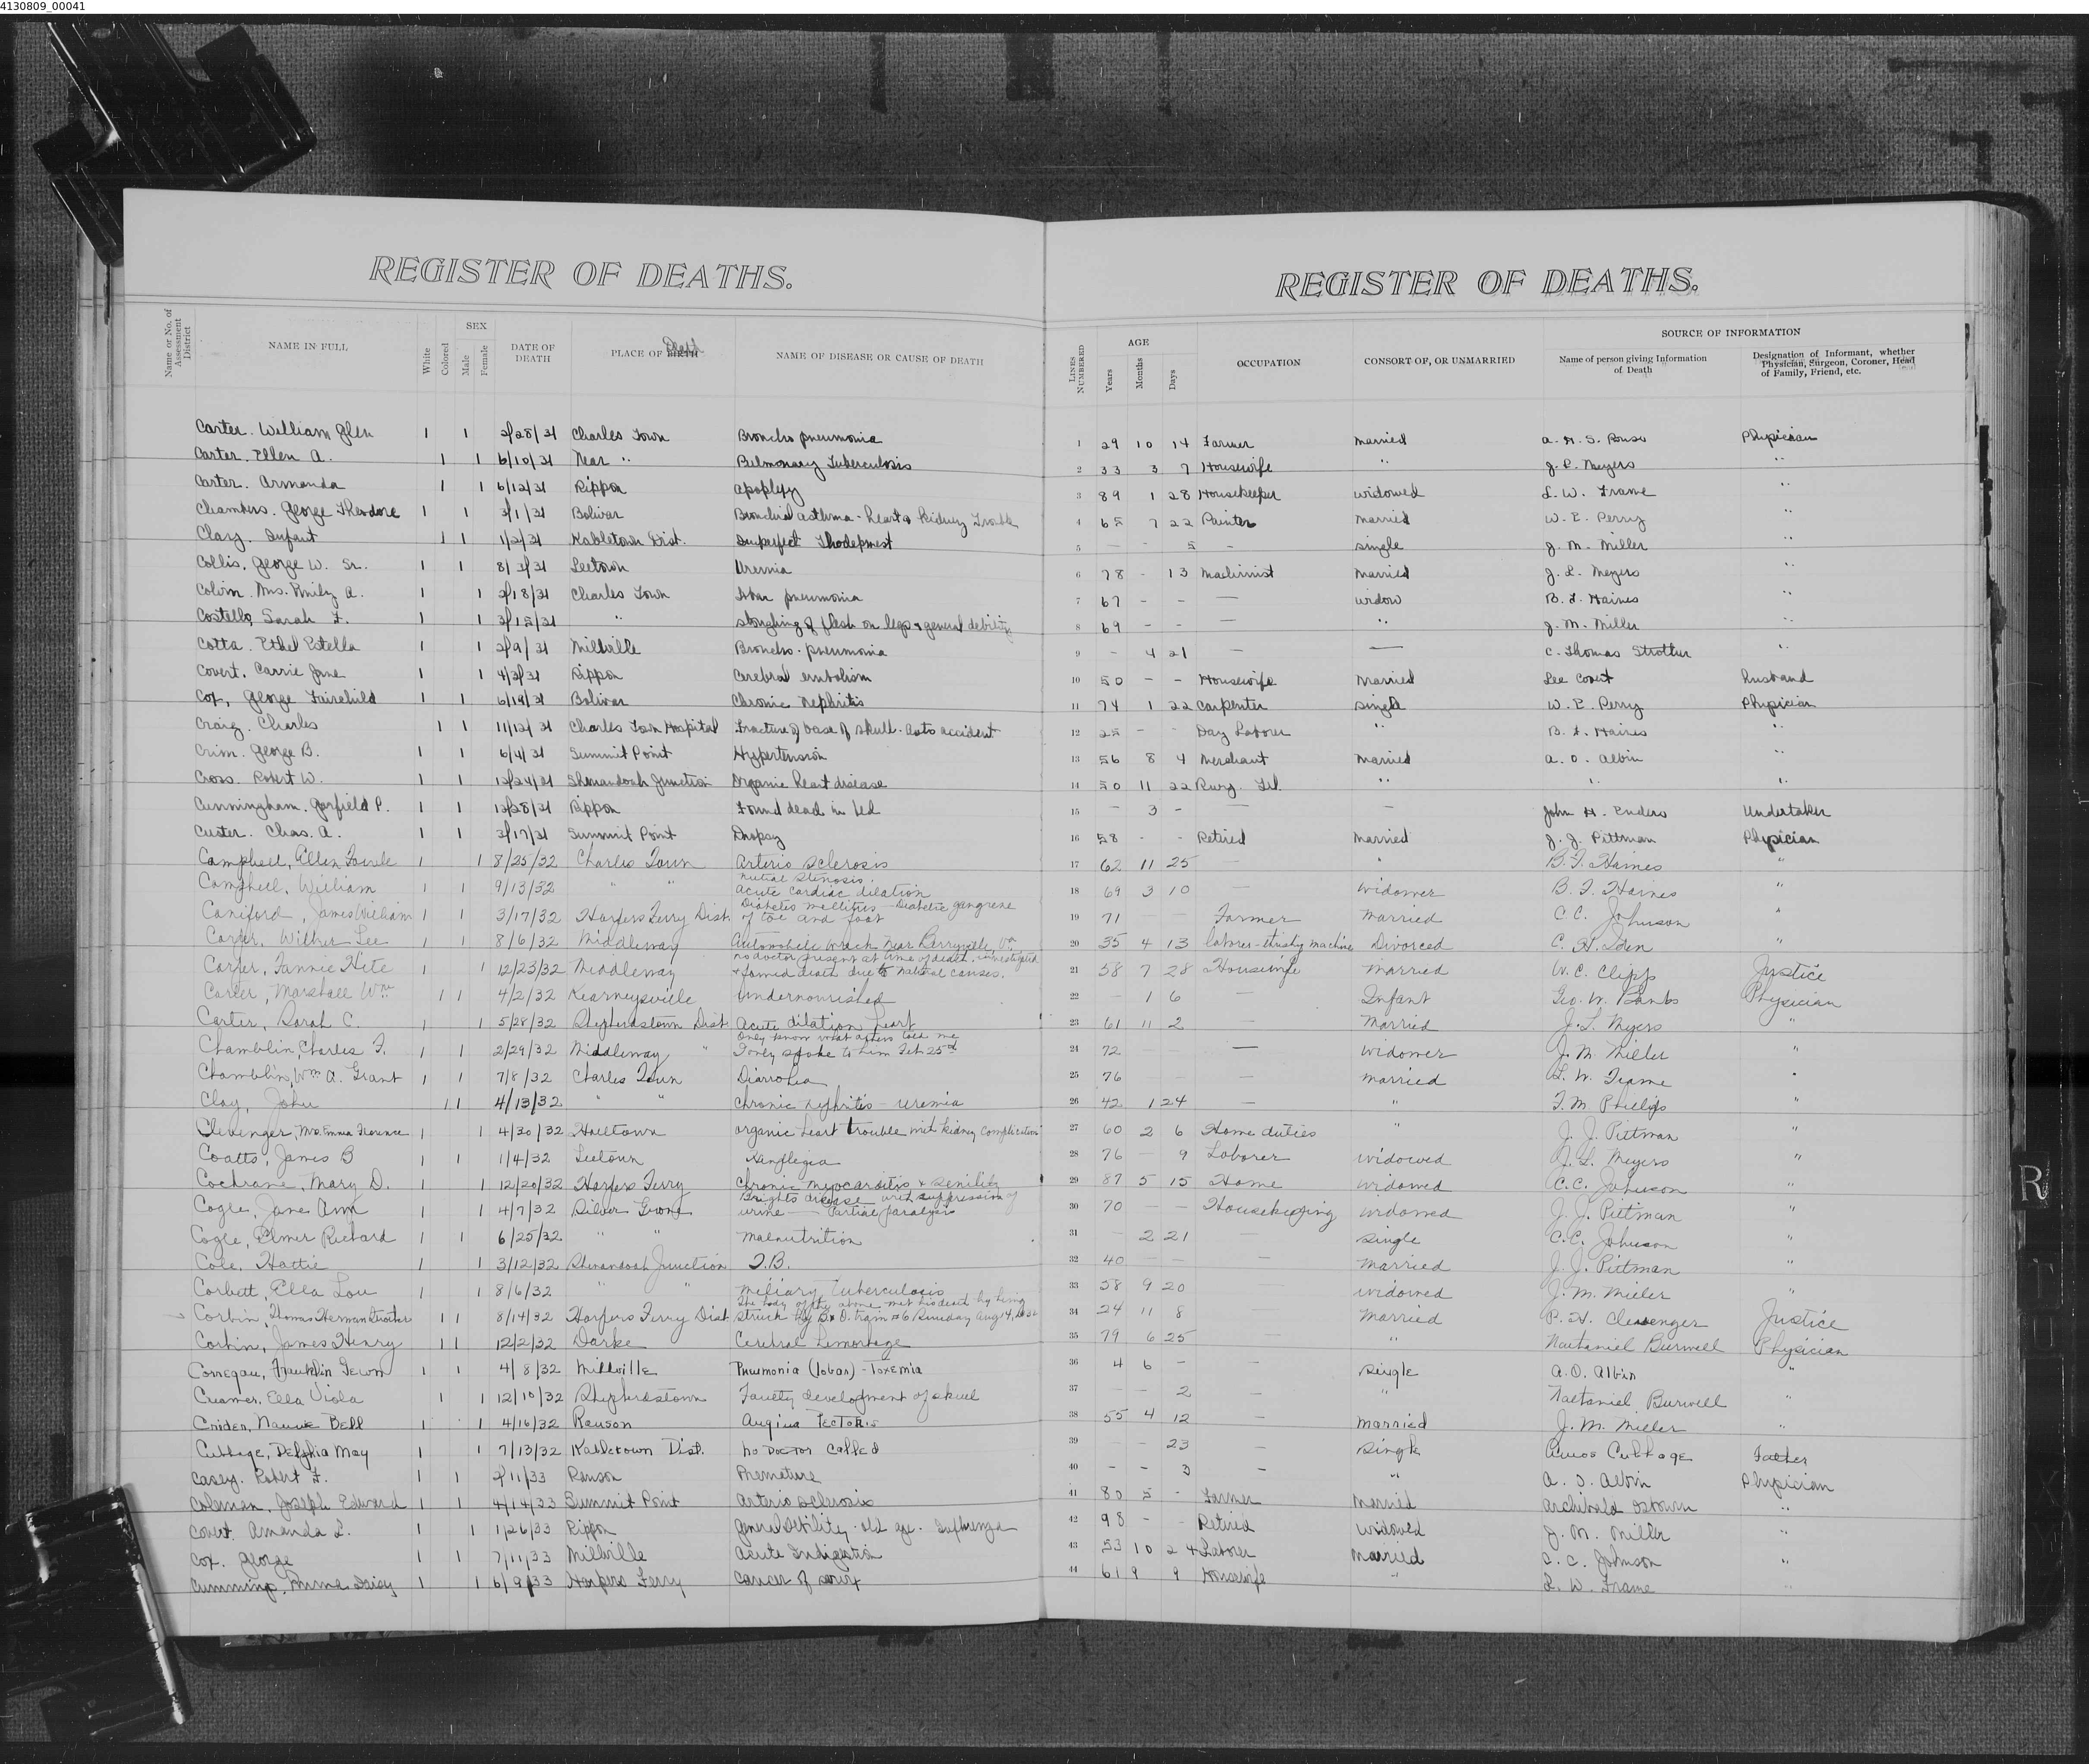 4130809_00041
REGISTER OF DEATHS.
Name or No. of Assessment District
NAME IN FULL
White
Colored
SEX
Male
Female
DATE OF DEATH
PLACE OF BIRTH Death
NAME OF DISEASE OR CAUSE OF DEATH
Carter. William Glen 1 1 2/28/31 Charles Town Broncho pneumonia
Carter. Ellen A. 1 1 6/10/31 Near " Pulmonary Tuberculosis
Carter. Armanda 1 1 6/12/31 Rippon Apoplexy
Chambers. George Theodore 1 1 3/1/31 Bolivar Bronchial asthma - heart & kidney Trouble
Clay. Infant 1 1 1/2/31 Kabletown Dist. Imperfect
Collis, George W. Sr. 1 1 8/3/31 Leetown Uremia
Colvin. Mrs. Emily A. 1 1 2/18/31 Charles Town pneumonia
Costello, Sarah F. 1 1 3/15/31 " Sloughing of flesh on legs & general debility
Cotta. Ethel Estella 1 1 2/9/31 Millville Broncho-pneumonia
Covert. Carrie Jane 1 1 4/3/31 Rippon Cerebral embolism
Cox, George Fairchild 1 1 6/19/31 Bolivar Chronic Nephritis
Craig, Charles 1 1 11/12/31 Charles Town Hospital Fracture of base of skull. Auto accident
Crim. George B. 1 1 6/4/31 Summit Point Hypertension
Cross. Robert W. 1 1 12/24/31 Shenandoah Junction Organic heart disease
Cunningham. Garfield P. 1 1 12/28/31 Rippon Found dead in bed
Custer. Chas. A. 1 1 3/17/31 Summit Point Dropsy
Campbell, Ellen 1 1 8/25/32 Charles Town Arterio sclerosis
Campbell, William 1 1 9/13/32 " " Mitral Stenosis, Acute cardiac dilation
Caniford, James William 1 1 3/17/32 Harpers Ferry Dist. Diabetes mellitus - Diabetic gangrene of toe and foot
Carter, Wilbur Lee 1 1 8/6/32 Middleway Automobile wreck near Berryville, Va.
Carter, Fannie Hite 1 1 12/23/32 Middleway no doctor present at time of death, investigated & found death due to natural causes.
Carter, Marshall Wm 1 1 4/2/32 Kearneysville Undernourished
Carter, Sarah C. 1 1 5/28/32 Shepherdstown Dist Acute dilation heart
Chamblin, Charles F. 1 1 2/29/32 Middleway " Only know what others told me I only spoke to him Feb 25th
Chamblin, Wm A. Grant 1 1 7/8/32 Charles Town Diarrohea
Clay, John 1 1 4/13/32 " " Chronic nephritis - uremia
Clevenger, Mrs. Emma Florence 1 1 4/30/32 Halltown organic heart trouble with kidney complication
Coatts, James B 1 1 1/4/32 Leetown
Cochrane, Mary D. 1 1 12/20/32 Harpers Ferry Chronic myocarditis & senility
Cogle, Jane Ann 1 1 4/7/32 Silver Grove Brights disease with suppression of urine — Partial paralysis
Cogle, Elmer Richard 1 1 6/25/32 " " Malnutrition
Cole, Hattie 1 1 3/12/32 Shenandoah Junction T.B.
Corbett, Ella Lou 1 1 8/6/32 " " Miliary Tuberculosis
Corbin, Thomas Herman Strother 1 1 8/14/32 Harpers Ferry Dist The body of the above met his death by being struck by B & O. train #6 Sunday Aug 14, 1932
Corbin, James Henry 1 1 12/2/32 Darke Cerebral hemorrhage
Corregan, Franklin 1 1 4/8/32 Millville Pnumonia (lobar) - Toxemia
Creamer, Ella Viola 1 1 12/10/32 Shepherdstown Faulty development of skull
Crider, Nannie Bell 1 1 4/16/32 Ranson Angina Pectoris
Cubbage, Delphia May 1 1 7/13/32 Kabletown Dist. No Doctor Called
Casey. Robert F. 1 1 2/11/33 Ranson Premature
Coleman, Joseph Edward 1 1 4/14/33 Summit Point Arterio sclerosis
Covert, Amanda L. 1 1 1/26/33 Rippon General Debility - old age. Influenza
Cox. George 1 1 7/11/33 Millville Acute Indigestion
Cummings, Emma Daisy 1 1 6/9/33 Harpers Ferry Cancer of
REGISTER OF DEATHS.
LINES NUMBERED
AGE
Years
Months
Days
OCCUPATION
CONSORT OF, OR UNMARRIED
SOURCE OF INFORMATION
Name of person giving Information of Death
Designation of Informant, whether Physician, Surgeon, Coroner, Head of Family, Friend, etc.
1 29 10 14 Farmer Married A. H. S. Rouse Physician
2 33 3 7 Housewife " J. L. Meyers "
3 89 1 28 Housekeeper widowed L. W. Frame "
4 65 7 22 Painter Married W. E. Perry "
5 — - 5 - single J. M. Miller "
6 78 - 13 Machinist Married J. L. Meyers "
7 67 - - — widow B. F. Haines "
8 69 - - — " J. M. Miller "
9 - 4 21 — — C. Thomas Strother "
10 50 - - Housewife Married Lee Covert Husband
11 74 1 22 Carpenter single W. E. Perry Physician
12 25 - - Day Laborer " B. F. Haines "
13 56 8 4 Merchant Married A. O. Albin "
14 50 11 22 " " "
15 — 3 - — — John H. Enders Undertaker
16 58 - - Retired Married J. J. Pittman Physician
17 62 11 25 — " B. F. Haines "
18 69 3 10 — Widower B. F. Haines "
19 71 — Farmer Married C. C. Johnson "
20 35 4 13 labores-thrishing machine Divorced C. H. Iden "
21 58 7 28 Housewife Married W. C. Clipp Justice
22 — 1 6 — Infant Geo. W. Banks Physician
23 61 11 2 — Married J. L. Myers "
24 72 — — — Widower J. M. Miller "
25 76 — — — Married L. W. Frame "
26 42 1 24 — " T. M. Phillips "
27 60 2 6 Home duties " J. J. Pittman "
28 76 — 9 Laborer widowed J. L. Meyers "
29 87 5 15 Home widowed C. C. Johnson "
30 70 — — Housekeeping widowed J. J. Pittman "
31 - 2 21 — Single C. C. Johnson "
32 40 — — - Married J. J. Pittman "
33 58 9 20 — widowed J. M. Miller "
34 24 11 8 — Married R. H. Clevenger Justice
35 79 6 25 — " Nathaniel Burwell Physician
36 4 6 - — Single A. O. Albin "
37 — — 2 — " Nathaniel Burwell "
38 55 4 12 — Married J. M. Miller "
39 — - 23 — Single Amos Cubbage Father
40 - - 3 - " A. O. Albin Physician
41 80 5 - Farmer Married Archibald Osbourn "
42 98 - - Retired widowed J. M. Miller "
43 53 10 24 Laborer Married C. C. Johnson "
44 61 9 9 Housewife " L. W. Frame "